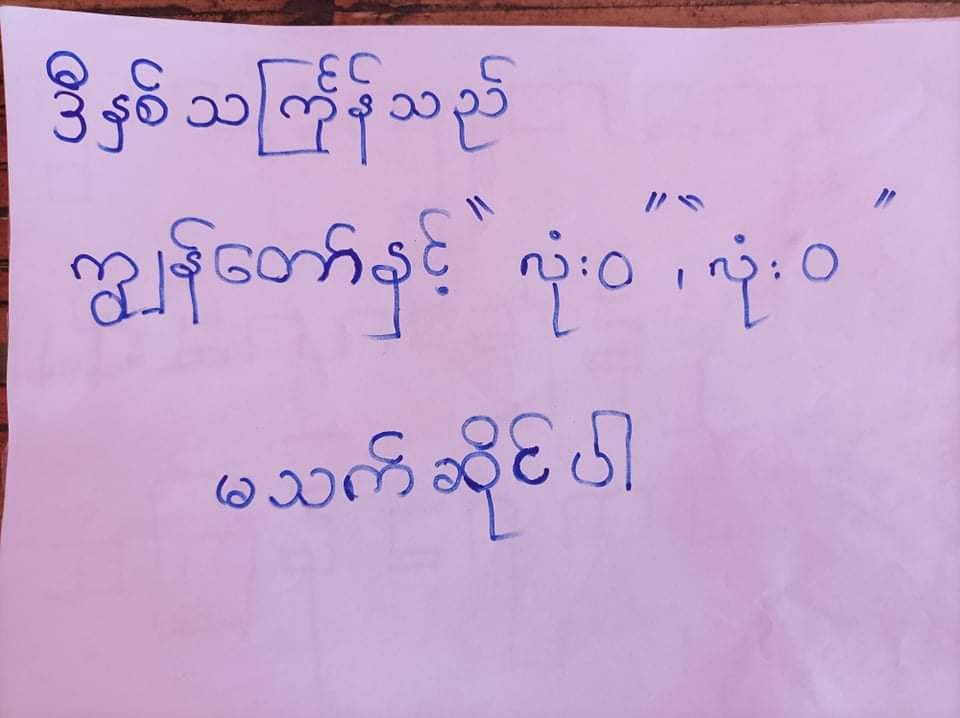 ဒီနှစ်သင်္ကြန်သည်
ကျွန်တော်နှင့် "လုံးဝ"၊ "လုံးဝ"
မသက်ဆိုင်ပါ